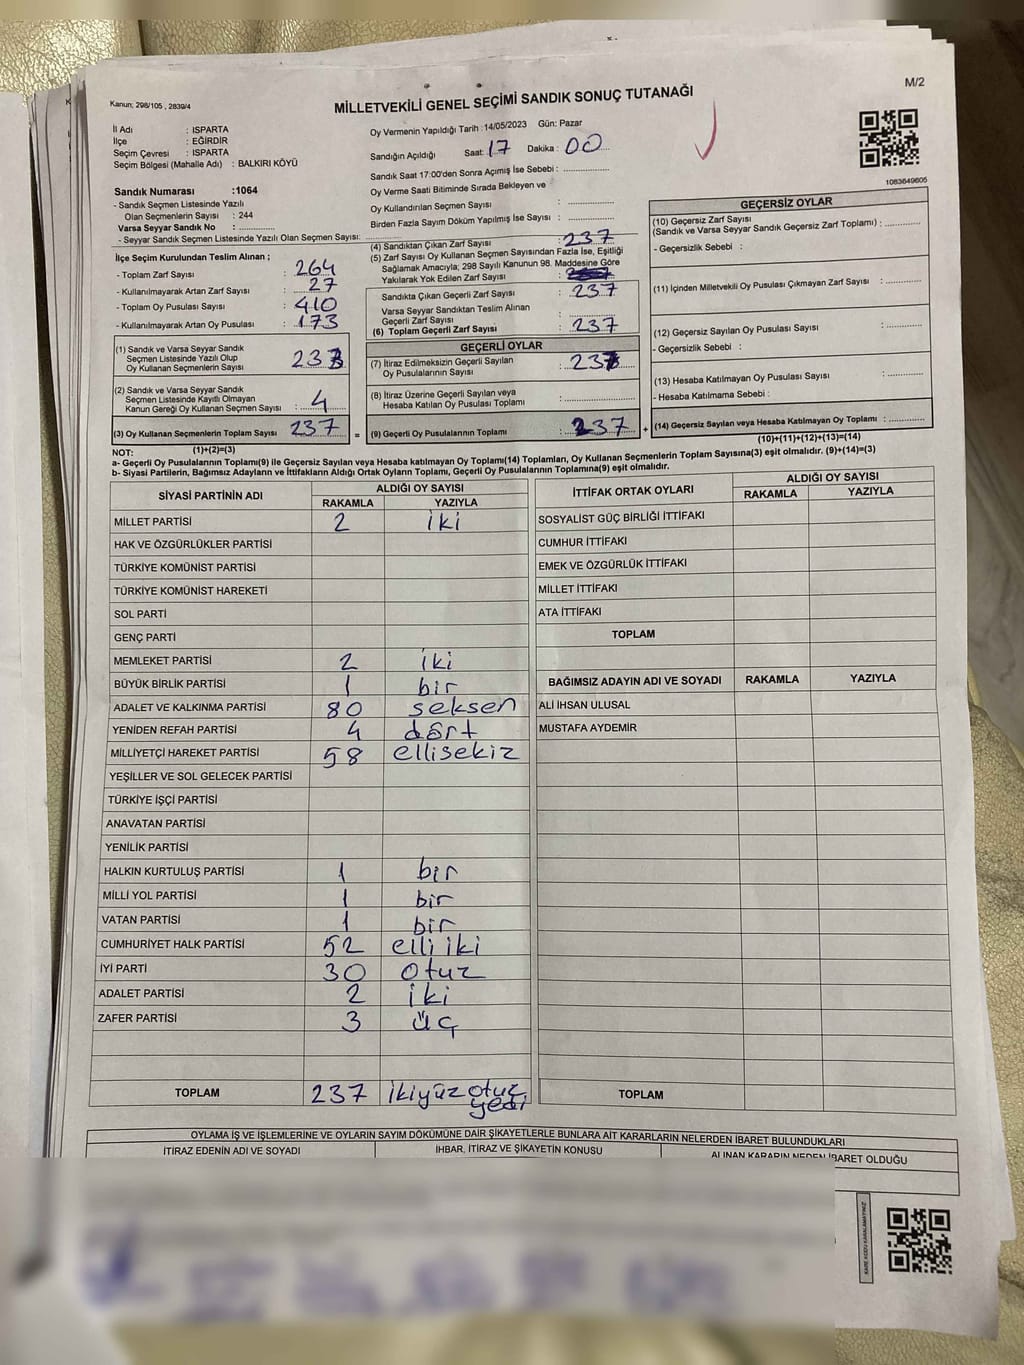 Kanun; 298/105 , 2839/4
MİLLETVEKİLİ GENEL SEÇİMİ SANDIK SONUÇ TUTANAĞI
M/2
İl Adı : ISPARTA
İlçe : EĞİRDİR
Seçim Çevresi : ISPARTA
Seçim Bölgesi (Mahalle Adı) : BALKIRI KÖYÜ
Sandık Numarası :1064
- Sandık Seçmen Listesinde Yazılı
Olan Seçmenlerin Sayısı : 244
Varsa Seyyar Sandık No : ..............
- Seyyar Sandık Seçmen Listesinde Yazılı Olan Seçmen Sayısı: ..............
İlçe Seçim Kurulundan Teslim Alınan ;
- Toplam Zarf Sayısı : 264
- Kullanılmayarak Artan Zarf Sayısı : 27
- Toplam Oy Pusulası Sayısı : 410
- Kullanılmayarak Artan Oy Pusulası : 173
(1) Sandık ve Varsa Seyyar Sandık
Seçmen Listesinde Yazılı Olup
Oy Kullanan Seçmenlerin Sayısı : 233
(2) Sandık ve Varsa Seyyar Sandık
Seçmen Listesinde Kayıtlı Olmayan
Kanun Gereği Oy Kullanan Seçmen Sayısı : 4
(3) Oy Kullanan Seçmenlerin Toplam Sayısı : 237
Oy Vermenin Yapıldığı Tarih :14/05/2023 Gün: Pazar
Sandığın Açıldığı Saat: 17 Dakika : 00
Sandık Saat 17:00'den Sonra Açımış İse Sebebi : ..............
Oy Verme Saati Bitiminde Sırada Bekleyen ve
Oy Kullandırılan Seçmen Sayısı : ..............
Birden Fazla Sayım Döküm Yapılmış İse Sayısı : ..............
(4) Sandıktan Çıkan Zarf Sayısı : 237
(5) Zarf Sayısı Oy Kullanan Seçmen Sayısından Fazla İse, Eşitliği
Sağlamak Amacıyla; 298 Sayılı Kanunun 98. Maddesine Göre
Yakılarak Yok Edilen Zarf Sayısı :
Sandıkta Çıkan Geçerli Zarf Sayısı : 237
Varsa Seyyar Sandıktan Teslim Alınan
Geçerli Zarf Sayısı : ..............
(6) Toplam Geçerli Zarf Sayısı : 237
GEÇERLİ OYLAR
(7) İtiraz Edilmeksizin Geçerli Sayılan
Oy Pusulalarının Sayısı : 237
(8) İtiraz Üzerine Geçerli Sayılan veya
Hesaba Katılan Oy Pusulası Toplamı : ..............
= (9) Geçerli Oy Pusulalarının Toplamı : 237 +
1083649605
GEÇERSİZ OYLAR
(10) Geçersiz Zarf Sayısı
(Sandık ve Varsa Seyyar Sandık Geçersiz Zarf Toplamı) : ..............
- Geçersizlik Sebebi :
(11) İçinden Milletvekili Oy Pusulası Çıkmayan Zarf Sayısı : ..............
(12) Geçersiz Sayılan Oy Pusulası Sayısı : ..............
- Geçersizlik Sebebi :
(13) Hesaba Katılmayan Oy Pusulası Sayısı : ..............
- Hesaba Katılmama Sebebi :
(14) Geçersiz Sayılan veya Hesaba Katılmayan Oy Toplamı : ..............
NOT: (1)+(2)=(3) (10)+(11)+(12)+(13)=(14)
a- Geçerli Oy Pusulalarının Toplamı(9) ile Geçersiz Sayılan veya Hesaba katılmayan Oy Toplamı(14) Toplamları, Oy Kullanan Seçmenlerin Toplam Sayısına(3) eşit olmalıdır. (9)+(14)=(3)
b- Siyasi Partilerin, Bağımsız Adayların ve İttifakların Aldığı Ortak Oyların Toplamı, Geçerli Oy Pusulalarının Toplamına(9) eşit olmalıdır.
SİYASİ PARTİNİN ADI ALDIĞI OY SAYISI
RAKAMLA YAZIYLA
MİLLET PARTİSİ 2 iki
HAK VE ÖZGÜRLÜKLER PARTİSİ
TÜRKİYE KOMÜNİST PARTİSİ
TÜRKİYE KOMÜNİST HAREKETİ
SOL PARTİ
GENÇ PARTİ
MEMLEKET PARTİSİ 2 iki
BÜYÜK BİRLİK PARTİSİ 1 bir
ADALET VE KALKINMA PARTİSİ 80 seksen
YENİDEN REFAH PARTİSİ 4 dört
MİLLİYETÇİ HAREKET PARTİSİ 58 ellisekiz
YEŞİLLER VE SOL GELECEK PARTİSİ
TÜRKİYE İŞÇİ PARTİSİ
ANAVATAN PARTİSİ
YENİLİK PARTİSİ
HALKIN KURTULUŞ PARTİSİ 1 bir
MİLLİ YOL PARTİSİ 1 bir
VATAN PARTİSİ 1 bir
CUMHURİYET HALK PARTİSİ 52 elli iki
İYİ PARTİ 30 otuz
ADALET PARTİSİ 2 iki
ZAFER PARTİSİ 3 üç
TOPLAM 237 ikiyüz otuz
yedi
İTTİFAK ORTAK OYLARI ALDIĞI OY SAYISI
RAKAMLA YAZIYLA
SOSYALİST GÜÇ BİRLİĞİ İTTİFAKI
CUMHUR İTTİFAKI
EMEK VE ÖZGÜRLÜK İTTİFAKI
MİLLET İTTİFAKI
ATA İTTİFAKI
TOPLAM
BAĞIMSIZ ADAYIN ADI VE SOYADI RAKAMLA YAZIYLA
ALİ İHSAN ULUSAL
MUSTAFA AYDEMİR
TOPLAM
OYLAMA İŞ VE İŞLEMLERİNE VE OYLARIN SAYIM DÖKÜMÜNE DAİR ŞİKAYETLERLE BUNLARA AİT KARARLARIN NELERDEN İBARET BULUNDUKLARI
İTİRAZ EDENİN ADI VE SOYADI İHBAR, İTİRAZ VE ŞİKAYETİN KONUSU ALINAN KARARIN NEDEN İBARET OLDUĞU
KARE KODU KARALAMAYINIZ